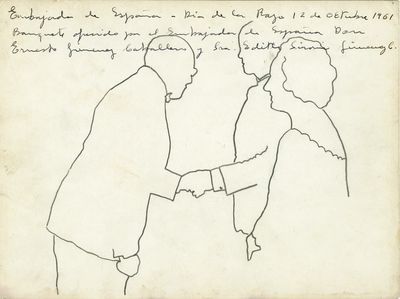 Embajada de España - Día de la Raza 12 de octubre 1961
Banquete ofrecido por el Embajador de España Don
Ernesto Gimenez Caballero y Sra. Edith Sironi Gimenez C.